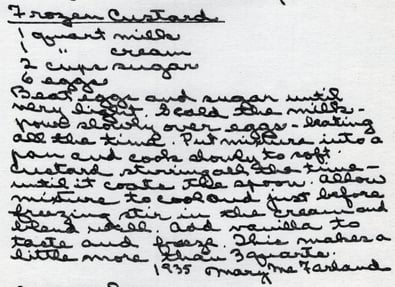 Frozen Custard
1 quart milk
1 " cream
2 cups sugar
6 eggs
Beat eggs and sugar until
very light. Scald the milk -
pour slowly over eggs - beating
all the time. Put mixture into a
pan and cook slowly to soft
custard stirring all the time -
until it coats the spoon. Allow
mixture to cool and just before
freezing stir in the cream and
blend well. Add vanilla to
taste and freeze. This makes a
little more than 3 quarts.
1935 Mary McFarland